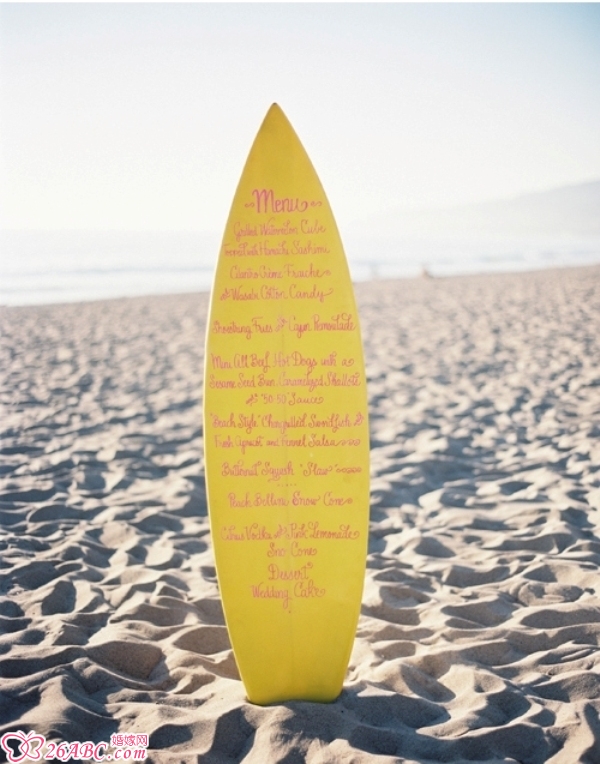 Menu
Grilled Watermelon Cube
Topped with Hamachi Sashimi
Cilantro Crème Fraiche
& Wasabi Cotton Candy
Shoestring Fries & Cajun Remoulade
Mini All Beef Hot Dogs with a
Sesame Seed Bun, Caramelized Shallots
& "50/50" Sauce
"Beach Style" Chargrilled Swordfish &
Fresh Apricot and Fennel Salsa
Butternut Squash "Slaw"
Peach Bellini Snow Cone
Citrus Vodka & Pink Lemonade
Sno Cone
Dessert
Wedding Cake
婚嫁网
26ABC.com